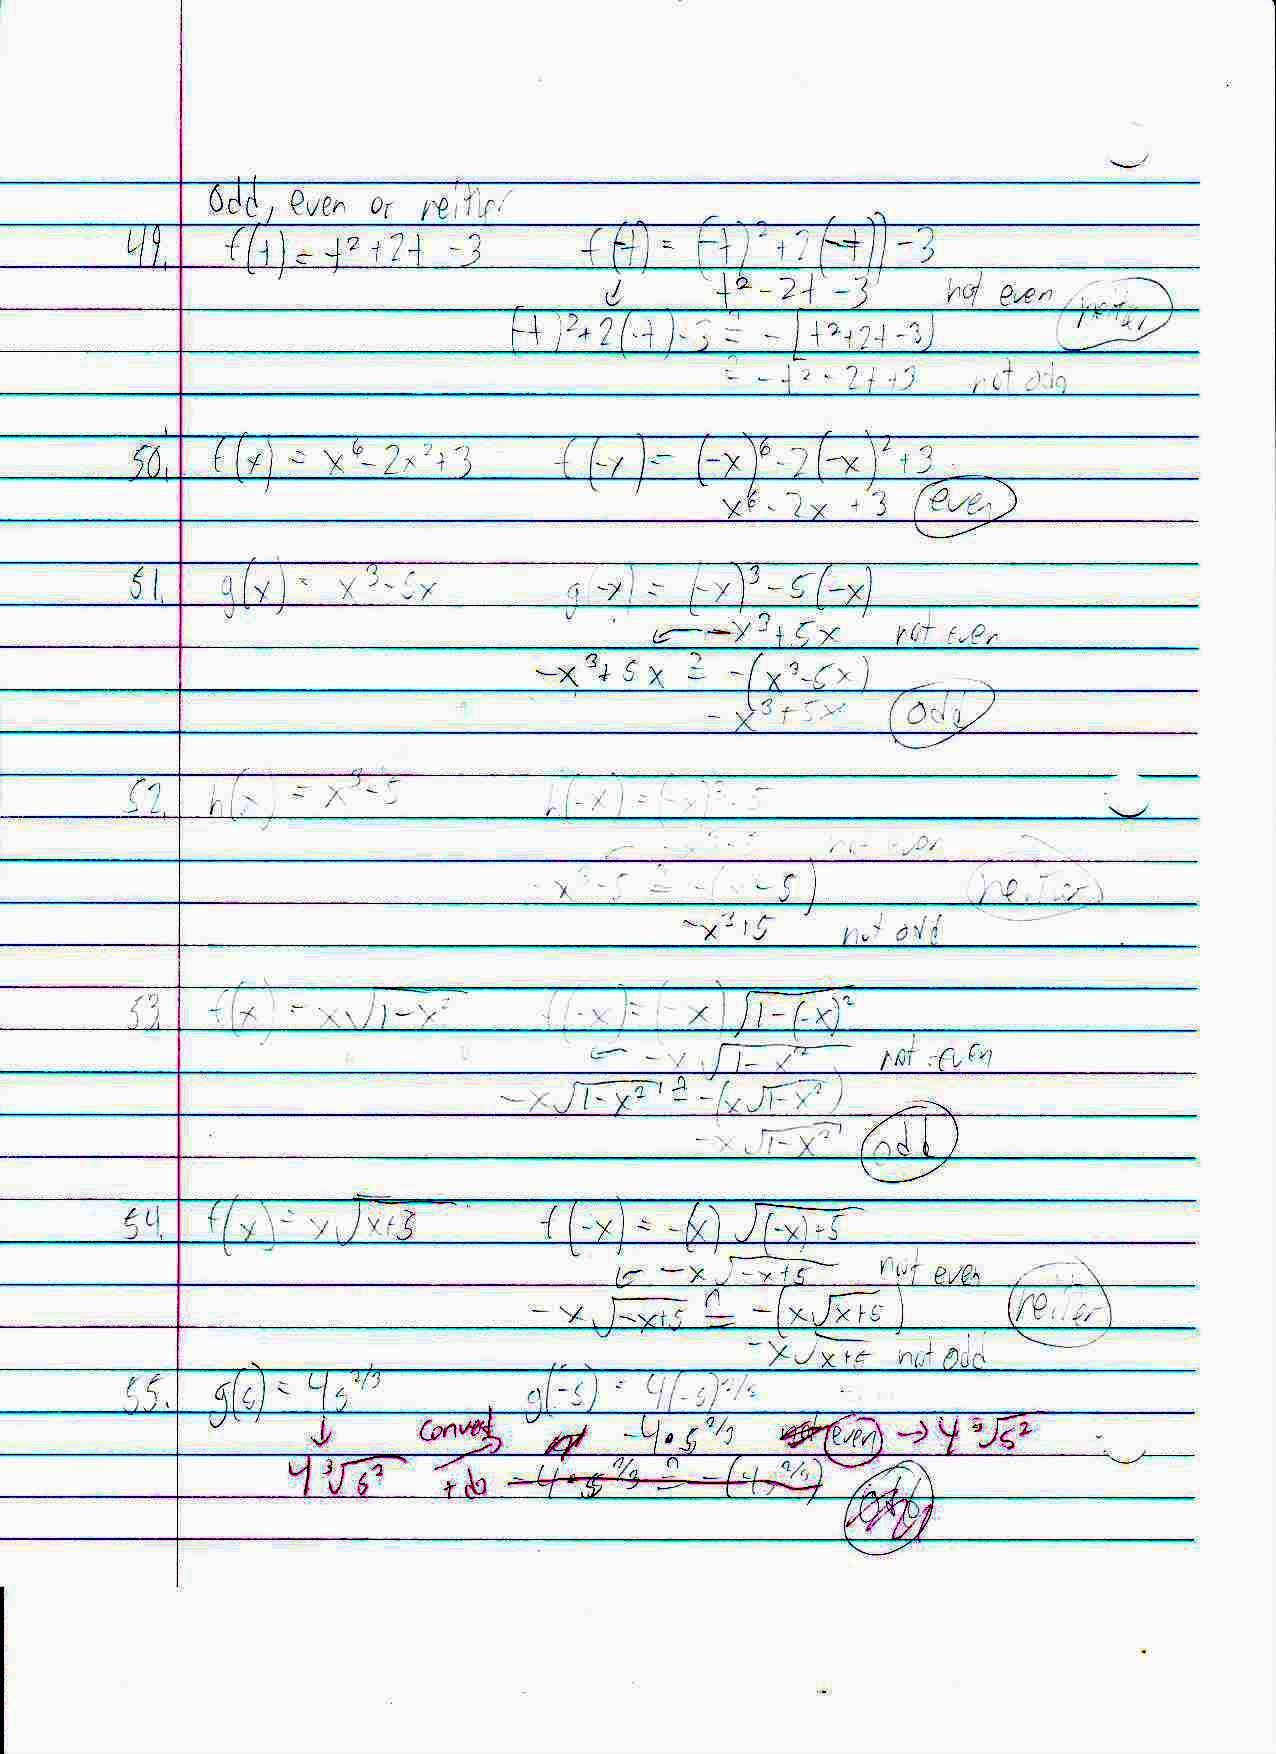 Odd, even or neither
49. f(t) = t² + 2t - 3 f(-t) = (-t)² + 2(-t) - 3
↓ t² - 2t - 3 not even neither
(-t)² + 2(-t) - 3 ≟ -[t² + 2t - 3]
≟ -t² - 2t + 3 not odd
50. f(x) = x⁶ - 2x² + 3 f(-x) = (-x)⁶ - 2(-x)² + 3
x⁶ - 2x + 3 even
51. g(x) = x³ - 5x g(-x) = (-x)³ - 5(-x)
← -x³ + 5x not even
-x³ + 5x ≟ -(x³ - 5x)
-x³ + 5x odd
52. h(x) = x³ - 5 h(-x) = (-x)³ - 5
← -x³ - 5 not even
-x³ - 5 ≟ -(x³ - 5) neither
-x³ + 5 not odd
53. f(x) = x√(1-x²) f(-x) = (-x)√(1-(-x)²)
← -x√(1-x²) not even
-x√(1-x²) ≟ -(x√(1-x²))
-x√(1-x²) odd
54. f(x) = x√(x+5) f(-x) = -(x)√((-x)+5)
← -x√(-x+5) not even
-x√(-x+5) ≟ -(x√(x+5)) neither
-x√(x+5) not odd
55. g(s) = 4s^2/3 g(-s) = 4(-s)^2/3
↓ convert -4·s^2/3 not even → 4 ³√s²
4 ³√s² to do -4·s^2/3 ≟ -(4s^2/3) odd